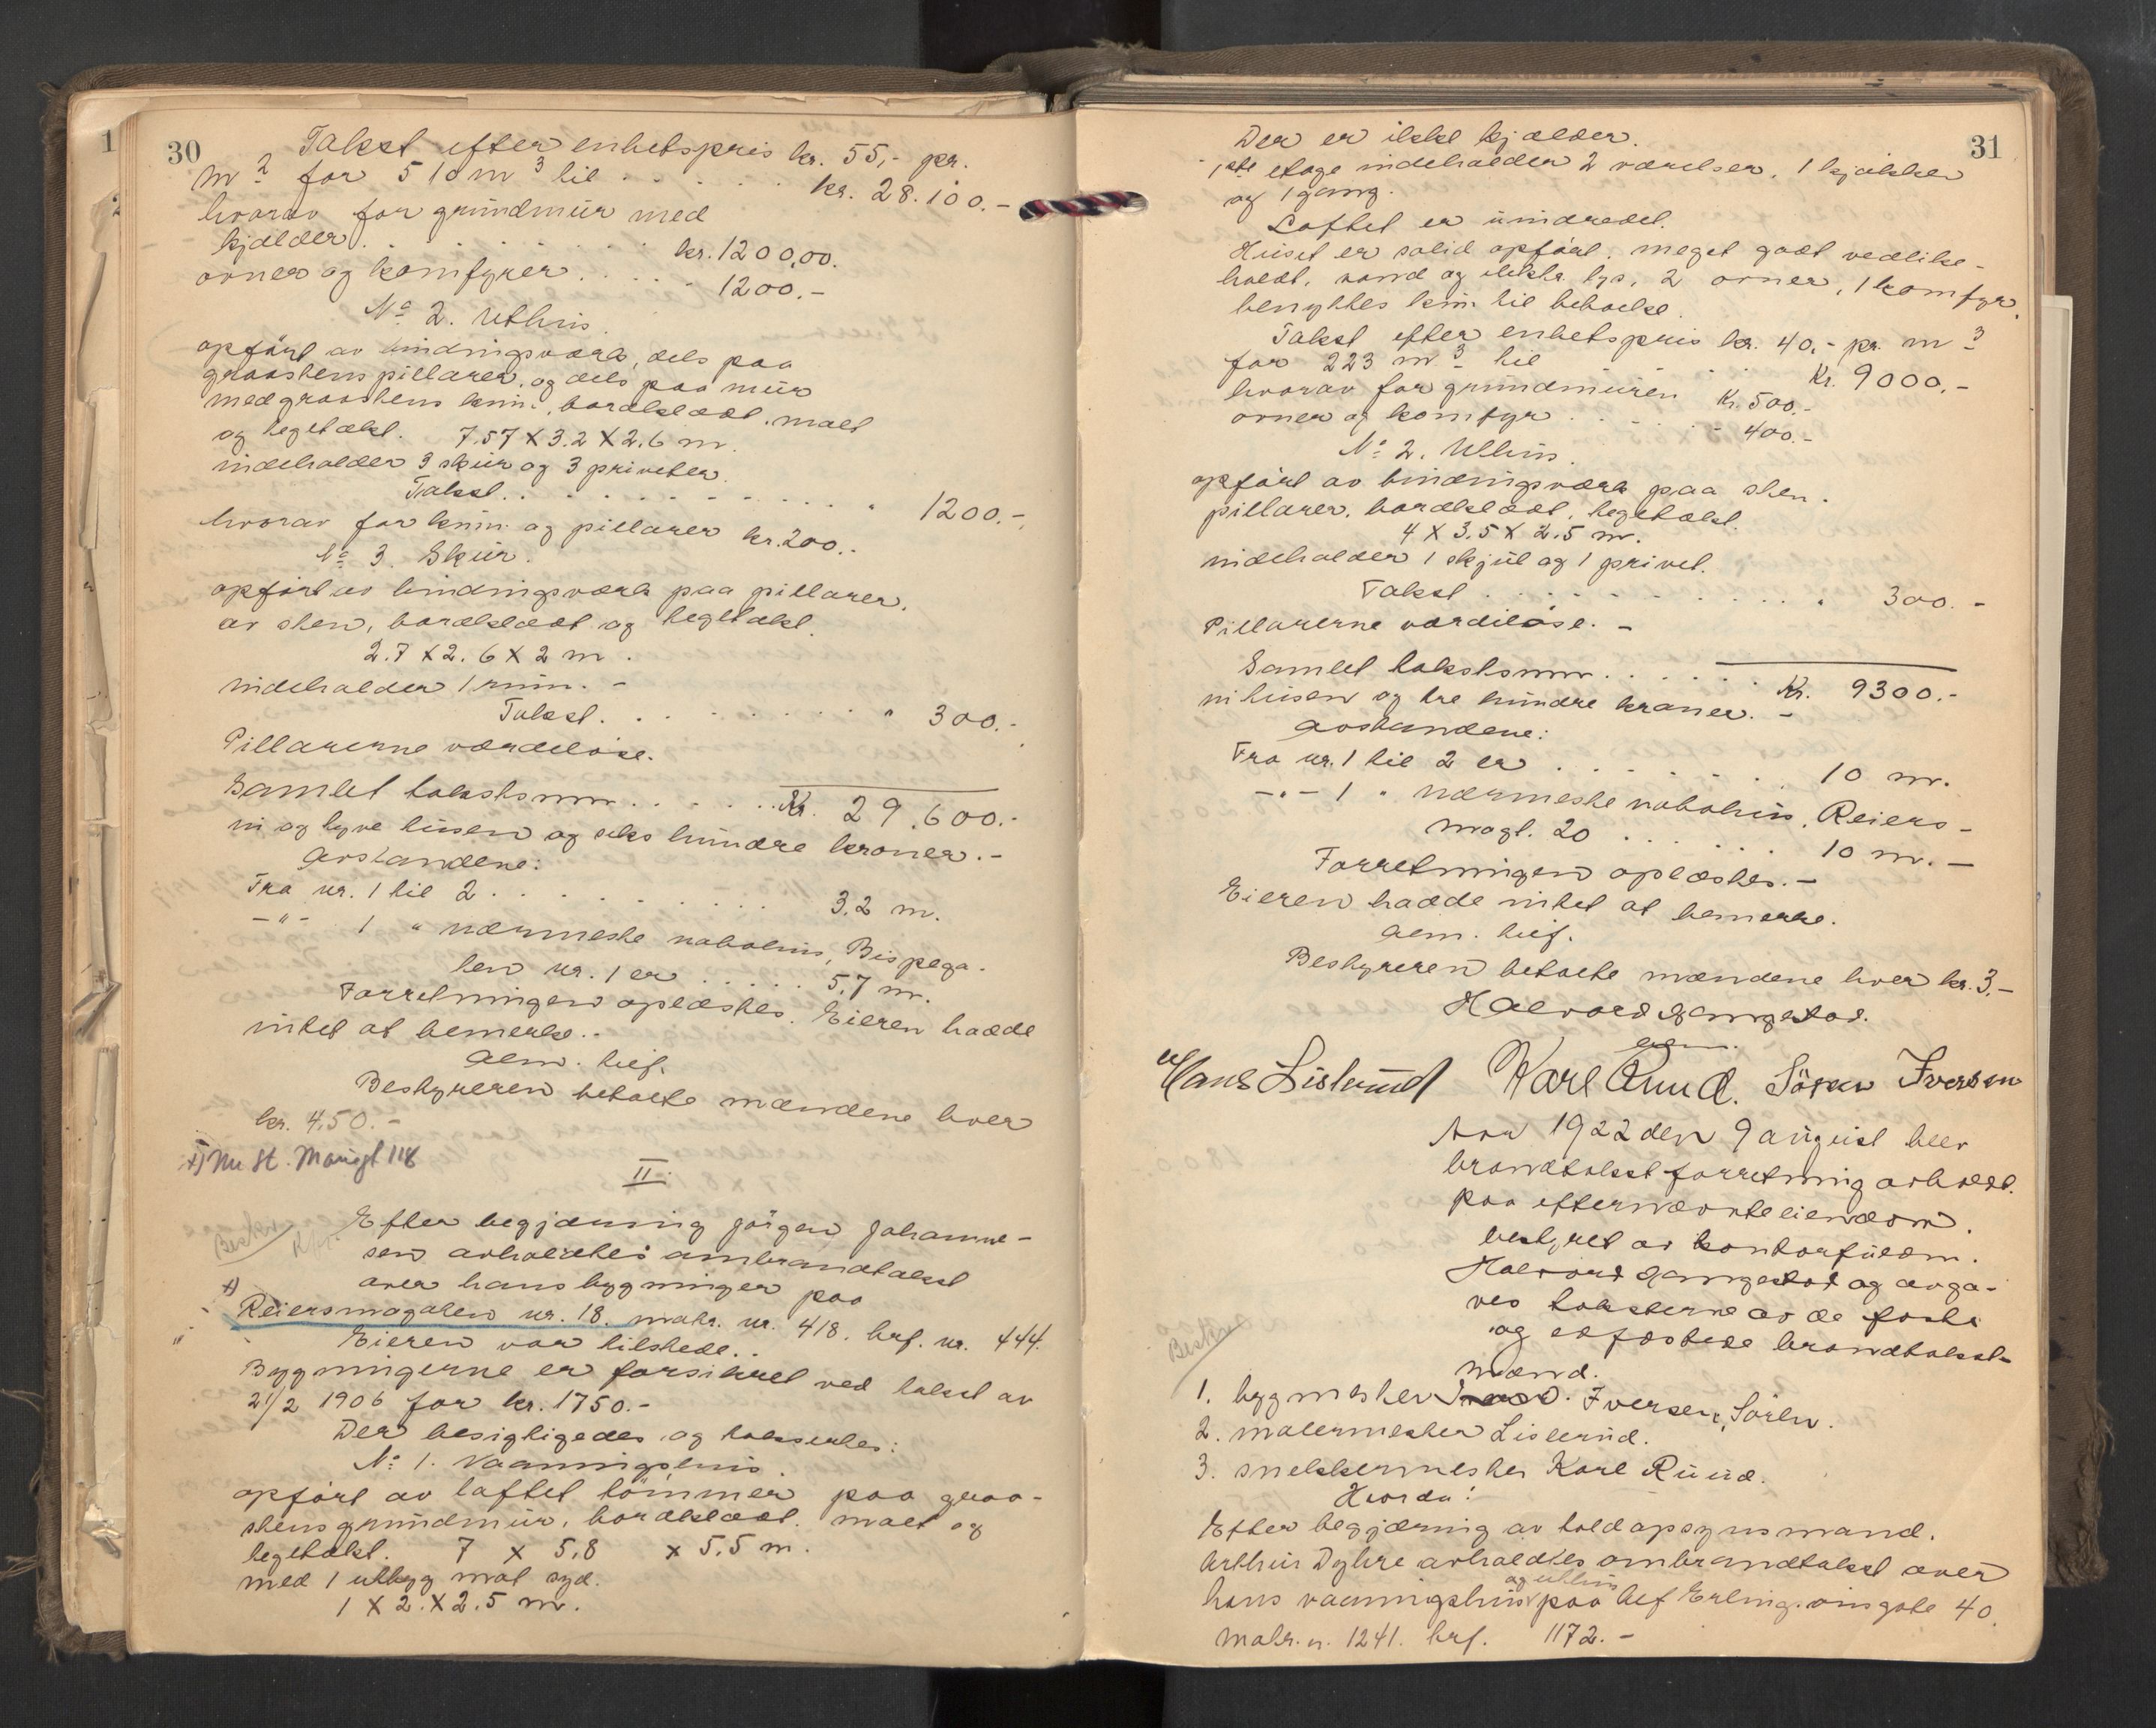 30
Takst efter enhetspris kr. 55,- pr.
m² for 510 m³ til . . . . . . kr. 28.100.-
hvorav for grundmur med
kjælder . . . . . . . . kr. 1200,00.
ovner og komfyrer . . . . 1200.-
No 2. Uthus.
opført av bindingsverk, dels paa
graastens pillarer, og dels paa mur
med graastens kum, bordklædt, malt
og teglt ækt. 7.57 X 3.2 X 2.6 m.
indeholder 3 skur og 3 priveter.
Takst . . . . . . . . . . " 1200.-
hvorav for kum og pillarer kr. 200.-
No 3. Skur.
opført av bindingsverk paa pillarer,
av sten, bordklædt og tegltækt.
2.7 X 2.6 X 2 m.
indeholder 1 rum. -
Takst . . . . . . . . " 300.-
Pillarerne værdiløse.
Samlet takstsum . . . . . Kr. 29.600.-
ni og tyve tusen og seks hundre kroner.-
Avstandene:
Fra nr. 1 til 2 . . . . . . . . 3,2 m.
-"- 1 " nærmeste nabohus, Bispega-
ten nr. 1 er . . . . . 5,7 m.
Forretningen oplæstes. Eieren hadde
intet at bemerke.-
Aem. hief.
Bestyreren betalte mændene hver
kr. 4,50.-
x) Nu St. Mariegt 118
II.
Efter begjæring Jørgen Johanne-
sen avholdtes ombrandtakst
over hans bygninger paa
x) Reiersmogaten nr. 18. matr. nr. 418. brf. nr. 444.
Eieren var tilstede.
Bygningerne er forsikret ved takst av
21/2 1906 for kr. 1750.-
Der besigtigedes og takserbes:
No 1. Vaaningshus.
opført av laftet tømmer paa graa-
stens grundmur, bordklædt. malt og
tegltækt. 7 x 5,8 x 5,5 m.
med 1 utbyg mot syd.
1 X 2. X 2.5 m.
31
Der er ikke kjælder.
1ste etage indeholder 2 værelser, 1 kjøkken
og 1 gang.
Loftet er uindredet.
Huset er solid opført, meget godt vedlike-
holdt, vand og elektr. lys, 2 ovner, 1 komfyr,
benyttes kun til beboelse.
Takst efter enhetspris kr. 40,- pr. m³
for 223 m³ til . . . . . . Kr. 9000.-
hvorav for grundmuren Kr. 500.-
ovner og komfyr . . . . . - 400.-
No 2. Uthus.
opført av bindingsverk paa sten.
pillarer, bordklædt, tegltækt.
4 X 3.5 X 2.5 m.
indeholder 1 skjul og 1 privet.
Takst . . . . . . . . . . . 300.-
Pillarerne værdiløse. -
Samlet takstsum . . . . . Kr. 9300.-
ni tusen og tre hundre kroner. -
Avstandene:
Fra nr. 1 til 2 er . . . . . . . . 10 m.
-"- 1 " nærmeste nabohus, Reiers-
mogt. 20 . . . . . . 10 m. -
Forretningen oplæstes. -
Eieren hadde intet at bemerke.
Aem. hief.
Bestyreren betalte mændene hver kr. 3,-
Halvord Gangestad.
Hans Lislerud Karl Ruud. Sören Iversen
Aar 1922 den 9 august blev
brandtakstforretning avholdt
paa efternævnte eiendom.
bestyret av kontorfuldm.
Halvord Gangestad og avga-
ves taksterne av de faste
og edfæstede brandtakst-
mænd.
1. bygmester Iversen, Sören.
2. malermester Lislerud.
3. snekkermester Karl Ruud.
Hvorda!
Efter begjæring av toldopsynsmand.
Arthur Dyhre avholdtes ombrandtakst over
hans vaaningshus og uthus paa Alf Erlingssönsgate 40
matr. n. 1241. brf. 1172.-